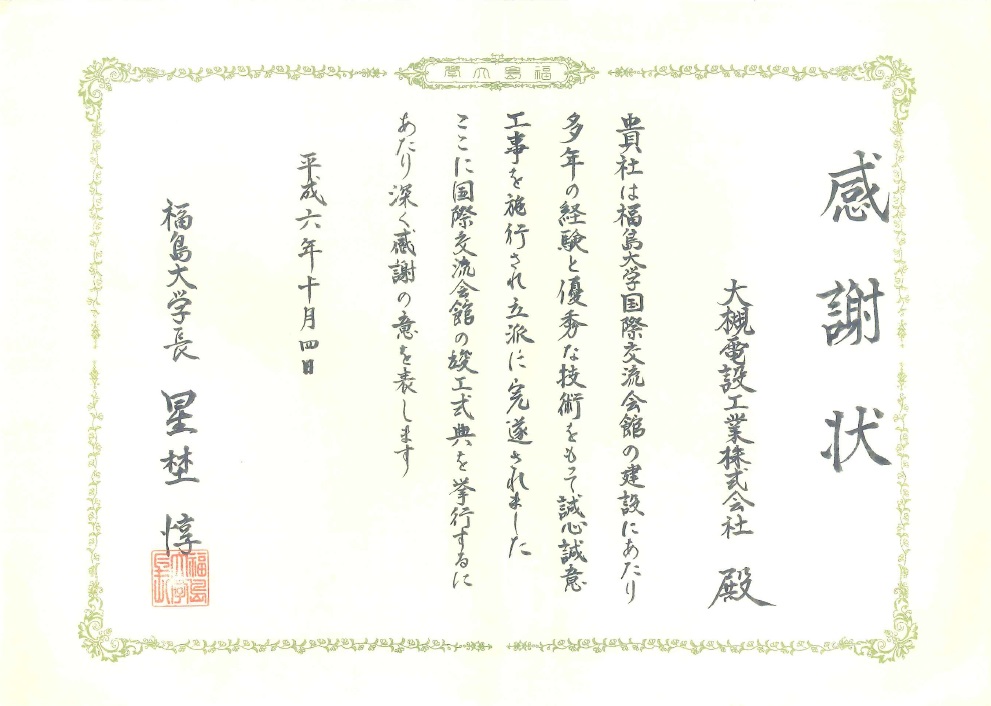 福島大学
感謝状
大槻電設工業株式会社 殿
貴社は福島大学国際交流会館の建設にあたり
多年の経験と優秀な技術をもって誠心誠意
工事を施行され立派に完遂されました
ここに国際交流会館の竣工式典を挙行するに
あたり深く感謝の意を表します
平成六年十月四日
福島大学長 星埜 惇
福島
大学
長山